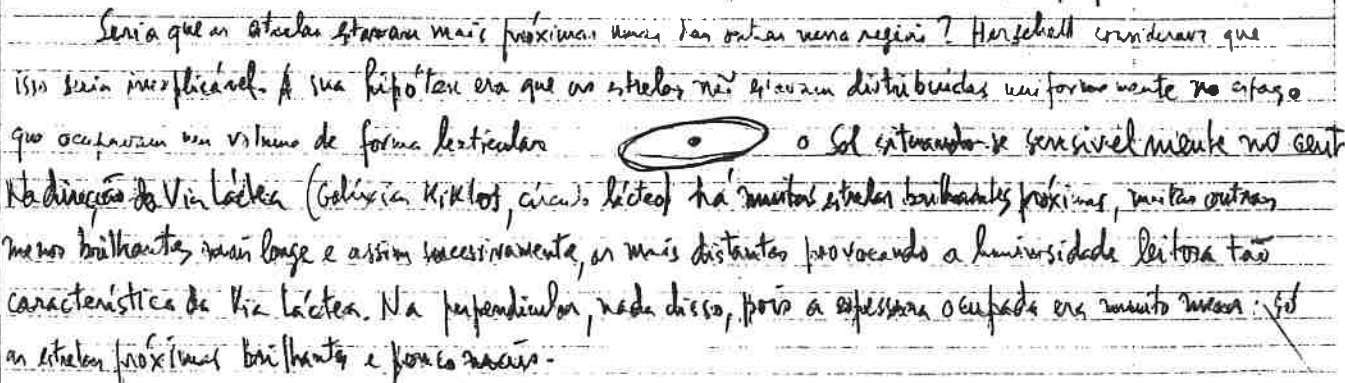 Seria que as estrelas estavam mais próximas umas das outras nessa região? Herschell considerava que
isso seria inexplicável. A sua hipótese era que as estrelas não estavam distribuídas uniformemente no espaço
que ocupavam um volume de forma lenticular o Sol situando-se sensivelmente no cent
Na direcção da Via Láctea (Galáxias Kiklos, círculo lácteo) há muitas estrelas brilhantes próximas, muitas outras
menos brilhantes mais longe e assim sucessivamente, as mais distantes provocando a luminosidade leitosa tão
característica da Via Láctea. Na perpendicular, nada disso, pois a espessura ocupada era muito menor: só
as estrelas próximas brilhantes e pouco mais.